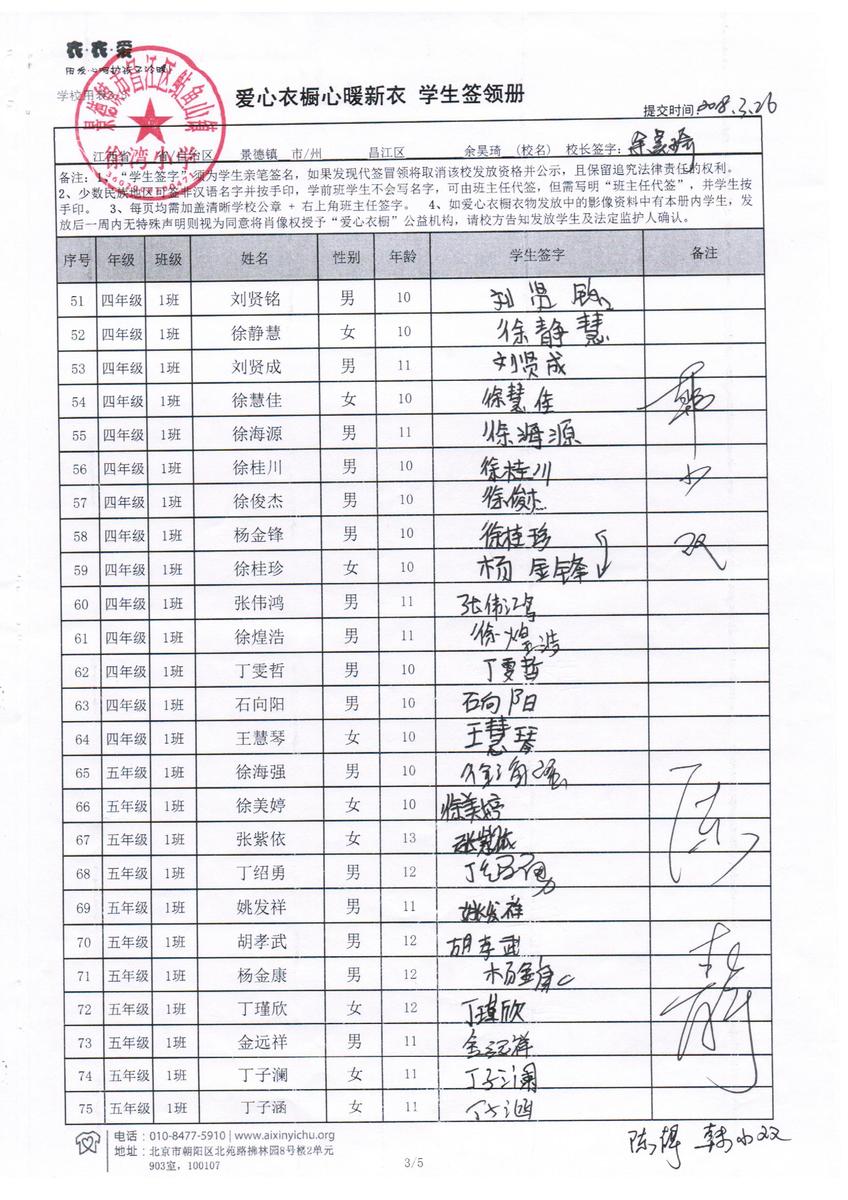 衣·衣·爱
用爱·心呵护孩子冷暖
学校用表2
爱心衣橱心暖新衣 学生签领册
提交时间: 2018.3.26
景德镇市昌江区鲇鱼山镇
徐湾小学
江西省 省/自治区 景德镇 市/州 昌江区 余昊琦 (校名) 校长签字: 余昊琦
备注: 1、“学生签字”须为学生亲笔签名, 如果发现代签冒领将取消该校发放资格并公示, 且保留追究法律责任的权利。
2、少数民族地区可签非汉语名字并按手印, 学前班学生不会写名字, 可由班主任代签, 但需写明“班主任代签”, 并学生按
手印。 3、每页均需加盖清晰学校公章 + 右上角班主任签字。 4、如爱心衣橱衣物发放中的影像资料中有本册内学生, 发
放后一周内无特殊声明则视为同意将肖像权授予“爱心衣橱”公益机构, 请校方告知发放学生及法定监护人确认。
序号 年级 班级 姓名 性别 年龄 学生签字 备注
51 四年级 1班 刘贤铭 男 10 刘贤铭
52 四年级 1班 徐静慧 女 10 徐静慧
53 四年级 1班 刘贤成 男 11 刘贤成
54 四年级 1班 徐慧佳 女 10 徐慧佳
55 四年级 1班 徐海源 男 11 徐海源
56 四年级 1班 徐桂川 男 10 徐桂川
57 四年级 1班 徐俊杰 男 10 徐俊杰
58 四年级 1班 杨金锋 男 10 徐桂珍
59 四年级 1班 徐桂珍 女 10 杨金锋
60 四年级 1班 张伟鸿 男 11 张伟鸿
61 四年级 1班 徐煌浩 男 11 徐煌浩
62 四年级 1班 丁雯哲 男 10 丁雯哲
63 四年级 1班 石向阳 男 10 石向阳
64 四年级 1班 王慧琴 女 10 王慧琴
65 五年级 1班 徐海强 男 10 徐海强
66 五年级 1班 徐美婷 女 10 徐美婷
67 五年级 1班 张紫依 女 13 张紫依
68 五年级 1班 丁绍勇 男 12 丁绍勇
69 五年级 1班 姚发祥 男 11 姚发祥
70 五年级 1班 胡孝武 男 12 胡孝武
71 五年级 1班 杨金康 男 12 杨金康
72 五年级 1班 丁瑾欣 女 12 丁瑾欣
73 五年级 1班 金远祥 男 11 金远祥
74 五年级 1班 丁子澜 女 11 丁子澜
75 五年级 1班 丁子涵 女 11 丁子涵
韩小双
电话: 010-8477-5910 | www.aixinyichu.org
地址: 北京市朝阳区北苑路拂林园8号楼2单元
903室, 100107
3/5
韩小双